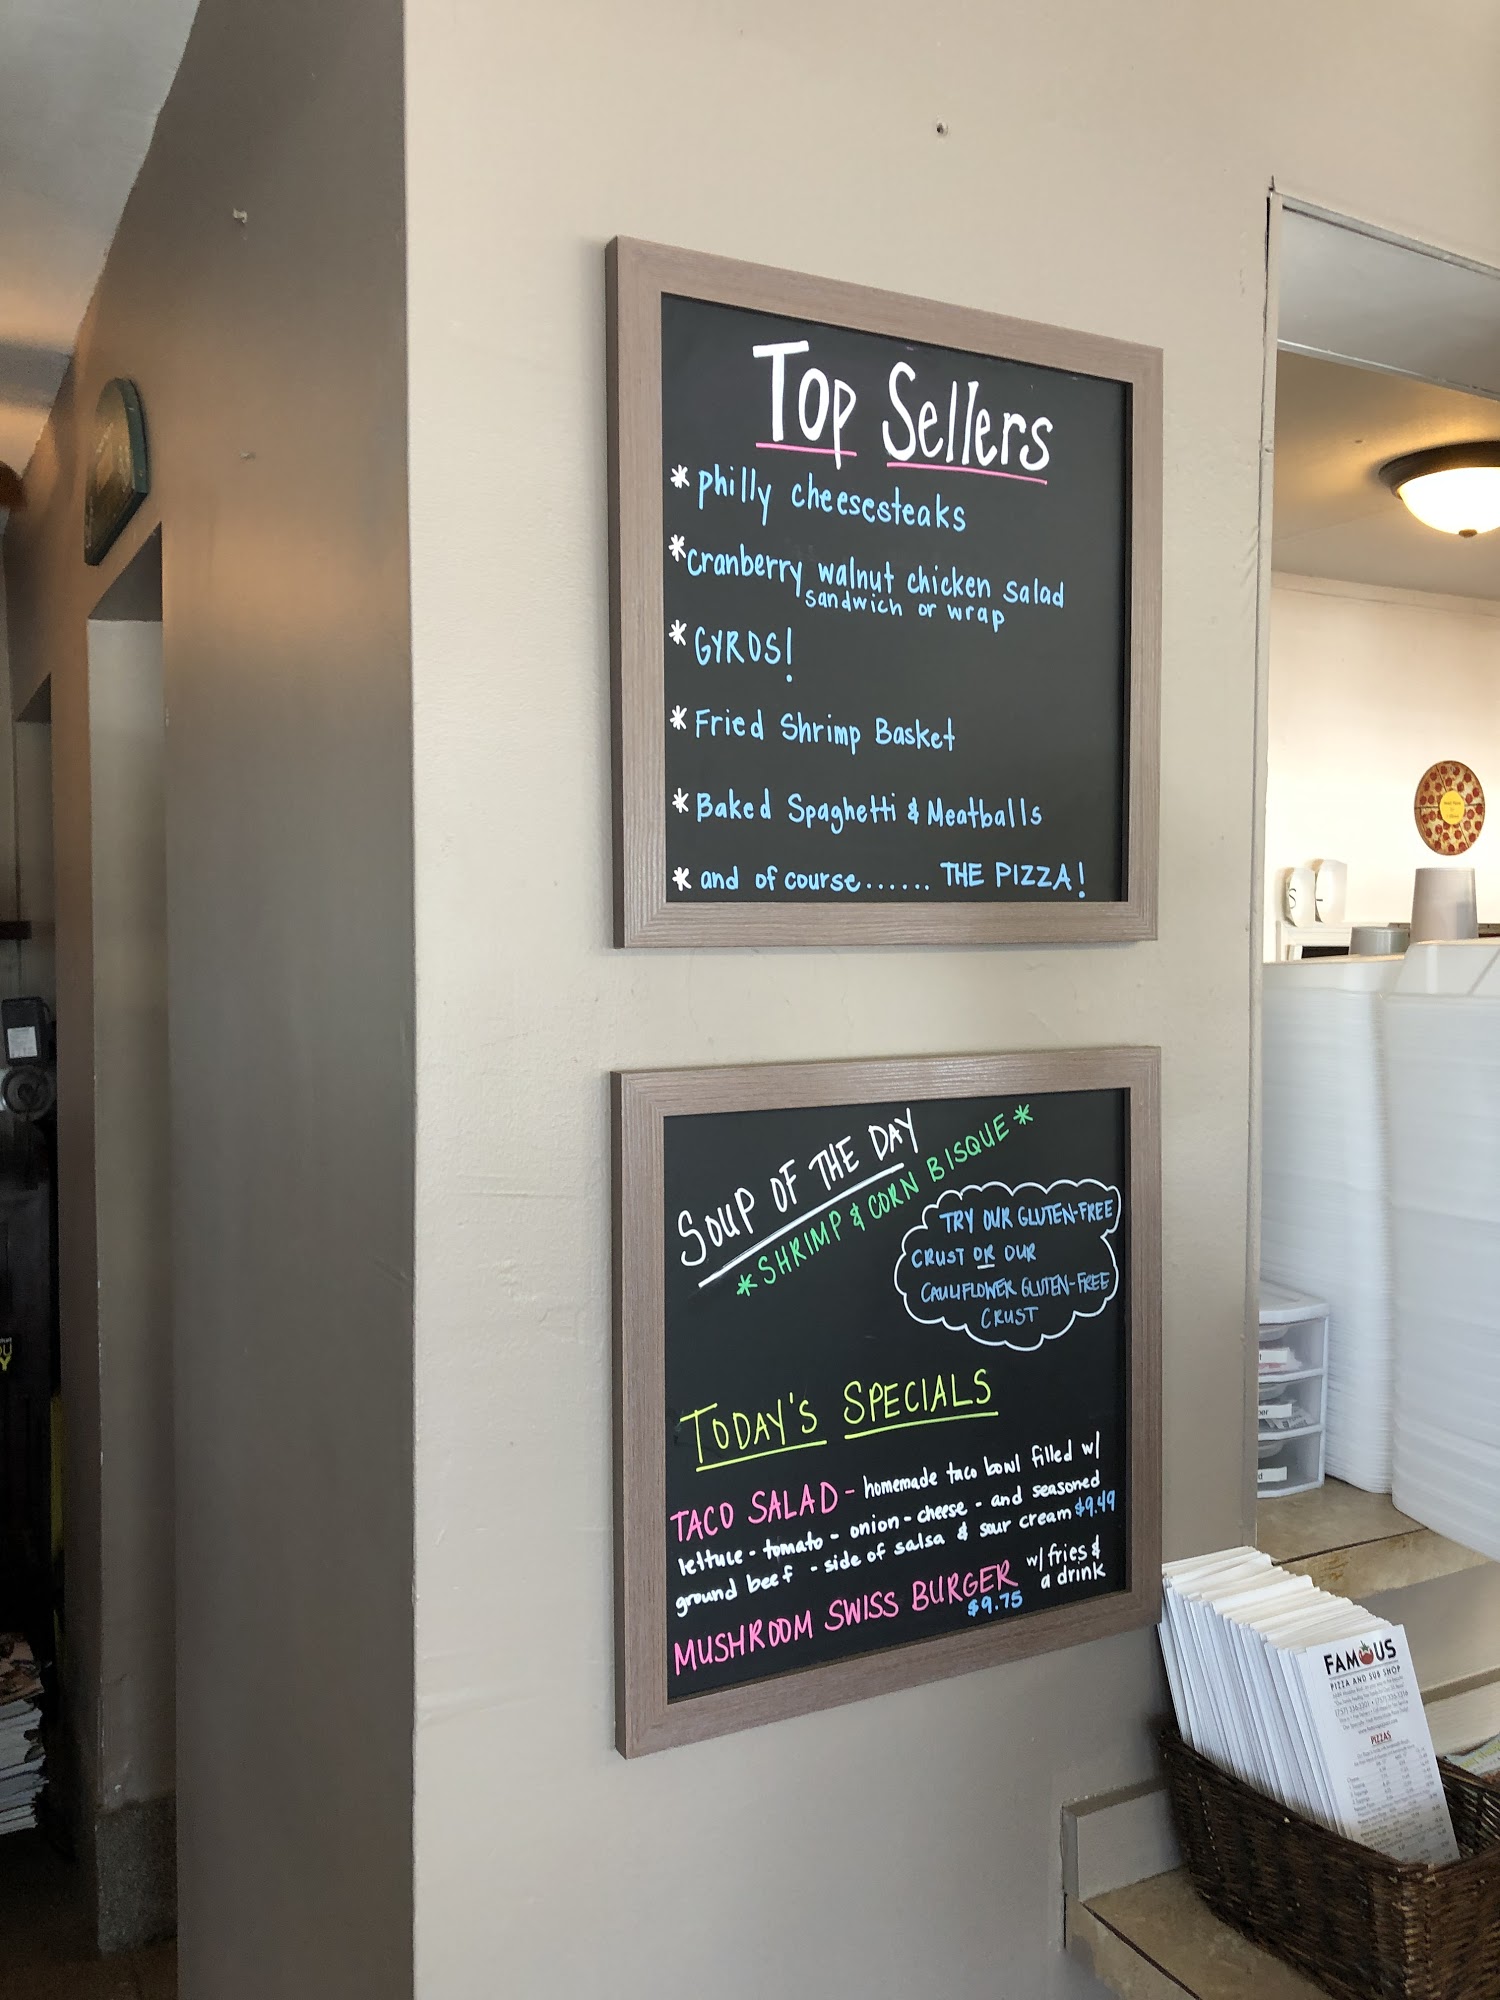 Top Sellers
* Philly cheesesteaks
* Cranberry walnut chicken salad
sandwich or wrap
* GYROS!
* Fried Shrimp Basket
* Baked Spaghetti & Meatballs
* and of course...... THE PIZZA!
SOUP OF THE DAY
* SHRIMP & CORN BISQUE *
TRY OUR GLUTEN-FREE
CRUST OR OUR
CAULIFLOWER GLUTEN-FREE
CRUST
TODAY'S SPECIALS
TACO SALAD - homemade taco bowl filled w/
lettuce - tomato - onion - cheese - and seasoned
ground beef - side of salsa & sour cream $9.49
MUSHROOM SWISS BURGER w/ fries &
a drink
$9.75
FAMOUS
PIZZA AND SUB SHOP
PIZZAS